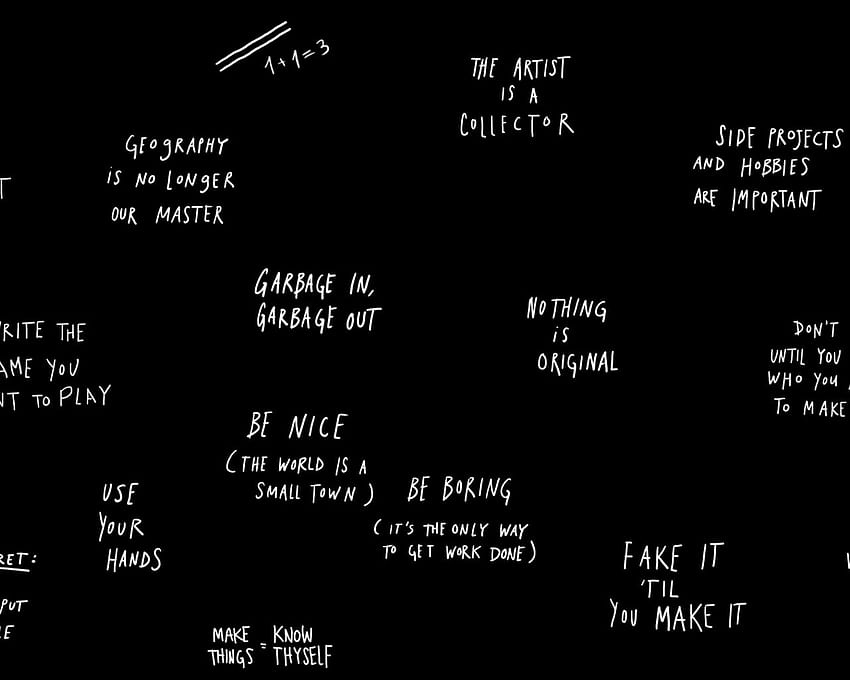 1+1=3
THE ARTIST
IS A
COLLECTOR
GEOGRAPHY
IS NO LONGER
OUR MASTER
SIDE PROJECTS
AND HOBBIES
ARE IMPORTANT
T
GARBAGE IN,
GARBAGE OUT
NOTHING
is
ORIGINAL
RITE THE
AME YOU
NT TO PLAY
DON'T
UNTIL YOU
WHO YOU
TO MAKE
BE NICE
(THE WORLD IS A
SMALL TOWN)
BE BORING
(IT'S THE ONLY WAY
TO GET WORK DONE)
USE
YOUR
HANDS
RET:
PUT
E
FAKE IT
'TIL
YOU MAKE IT
MAKE THINGS = KNOW THYSELF